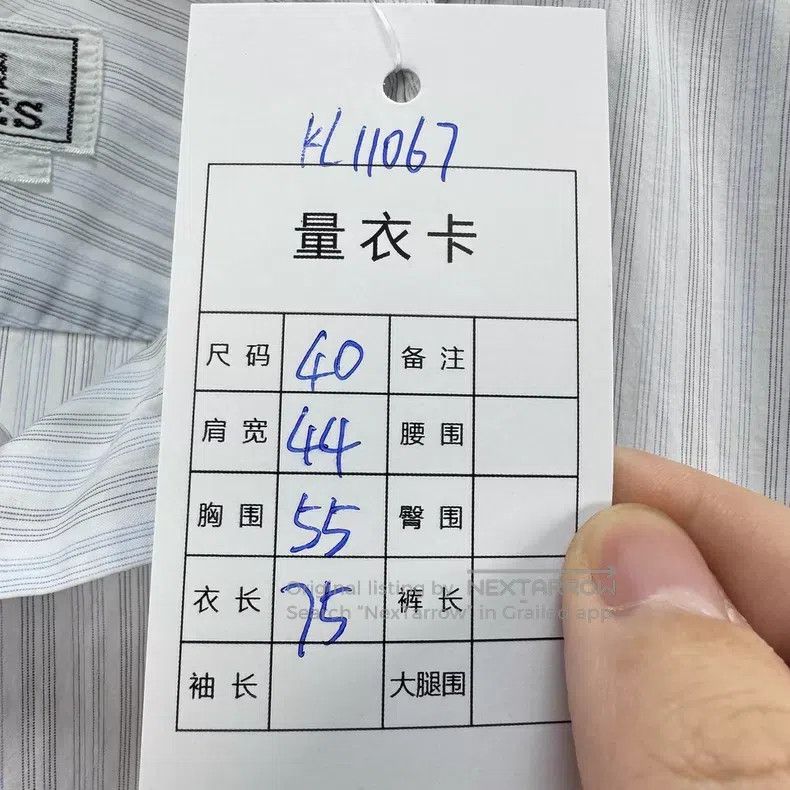 ES
KL11067
量衣卡
尺码 40 备注
肩宽 44 腰围
胸围 55 臀围
衣长 75 裤长
Original listing by NEXTARROW
Search "NexTarrow" in Grailed app
袖长 大腿围